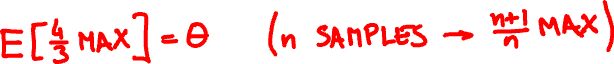 E[4/3 MAX] = θ (n SAMPLES → n+1/n MAX)